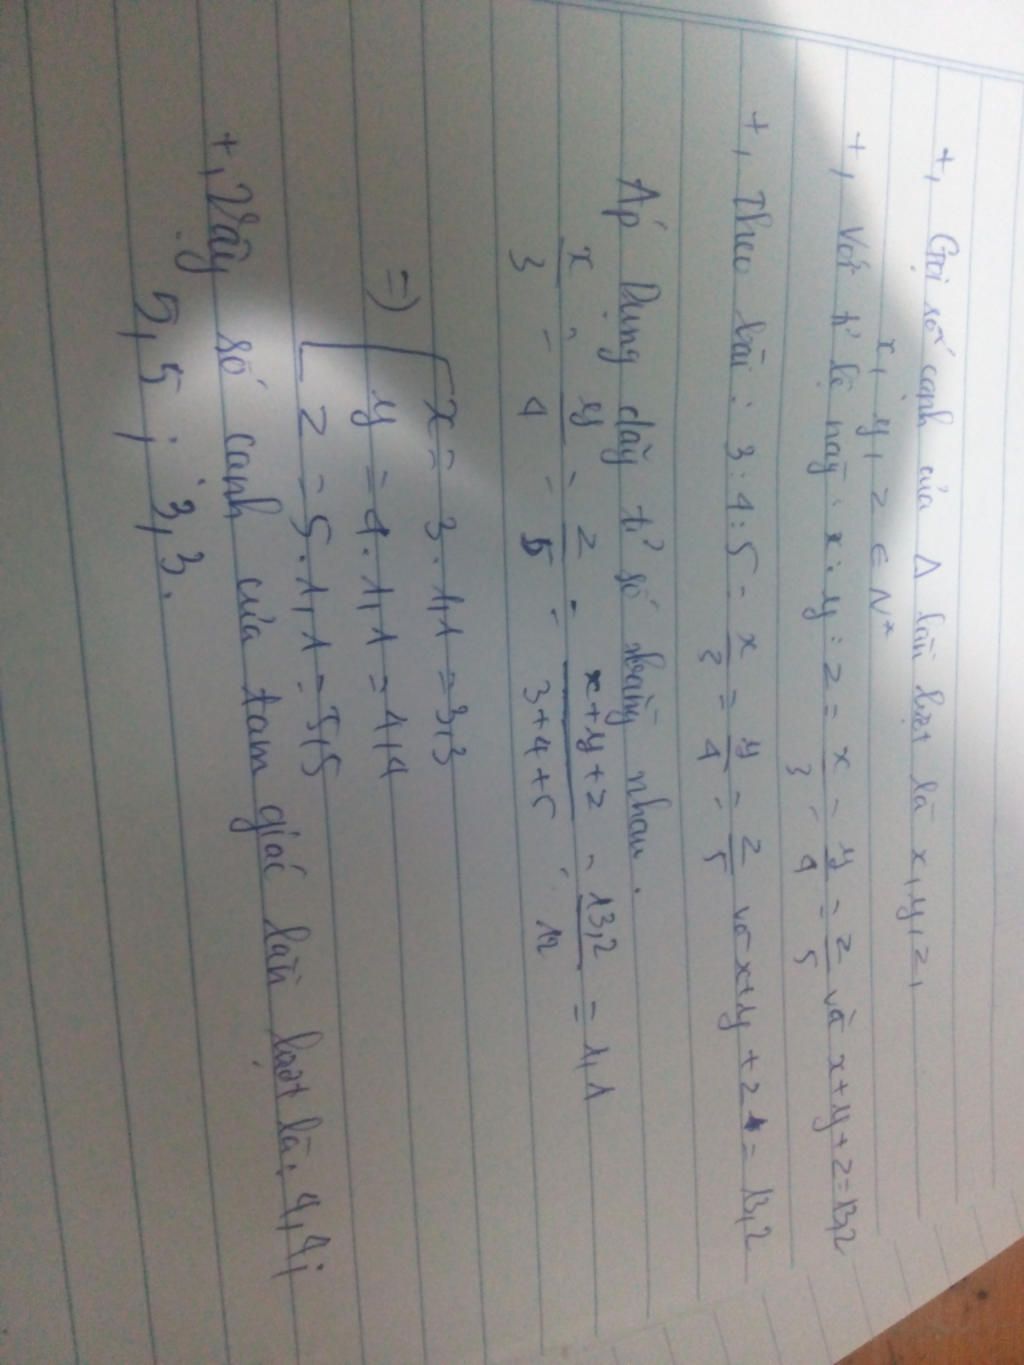 +, Gọi số cạnh của Δ lần lượt là x, y, z,
x, y, z ∈ N*
+, Với tỉ lệ này: x : y : z = x/3 = y/4 = z/5 và x+y+z=13,2
+, Theo bài : 3:4:5 = x/3 = y/4 = z/5 và x+y+z = 13,2
Áp Dụng dãy tỉ số bằng nhau.
x/3 = y/4 = z/5 = x+y+z/3+4+5 = 13,2/12 = 1,1
=> [ x = 3.1,1 = 3,3
y = 4.1,1 = 4,4
z = 5.1,1 = 5,5
+, Vậy số cạnh của tam giác lần lượt là: 4,4;
5,5 ; 3,3.